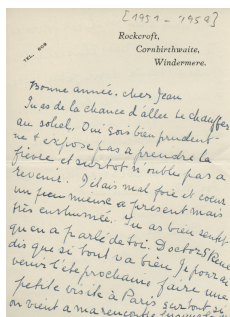 [1951-1952]
TEL. 609
Rockcroft,
Cornbirthwaite,
Windermere.
Bonne année. cher Jean
Tu as de la chance d'aller te chauffer
au soleil. Oui sois bien prudent
ne t'expose pas a prendre la
fièvre et surtout n'oublie pas a
revenir. J'étais mal foie et coeur
un peu mieux a présent mais
très enrhumée. Tu as bien senti
qu'on a parlé de toi. Doctor
dis que si tout va bien je pourrai
venir l'été prochaine faire une
petite visite à Paris surtout si
on vient a ma rencontre